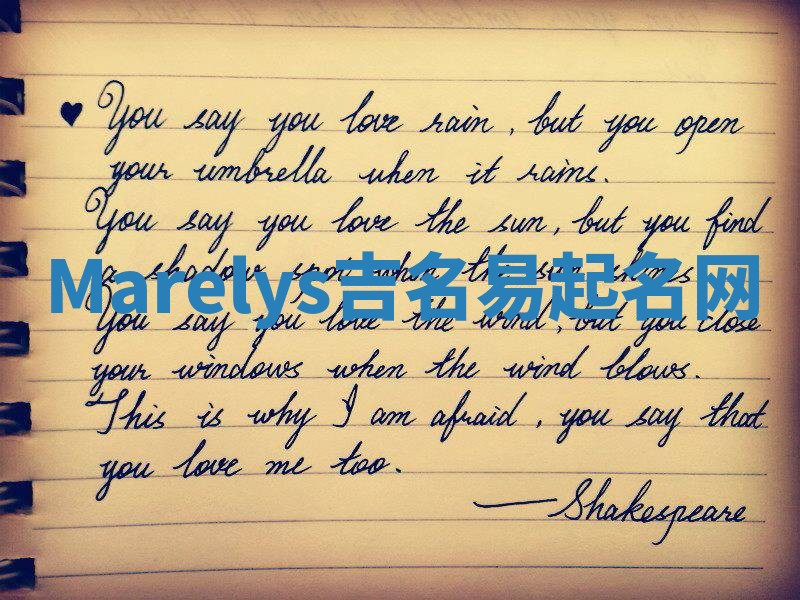 ♥ You say you love rain, but you open
your umbrella when it rains.
You say you love the sun, but you find
a shadow spot when the sun shines
Marelys吉名易起名网
You say you love the wind, but you close
your windows when the wind blows.
This is why I am afraid, you say that
you love me too.
— Shakespeare